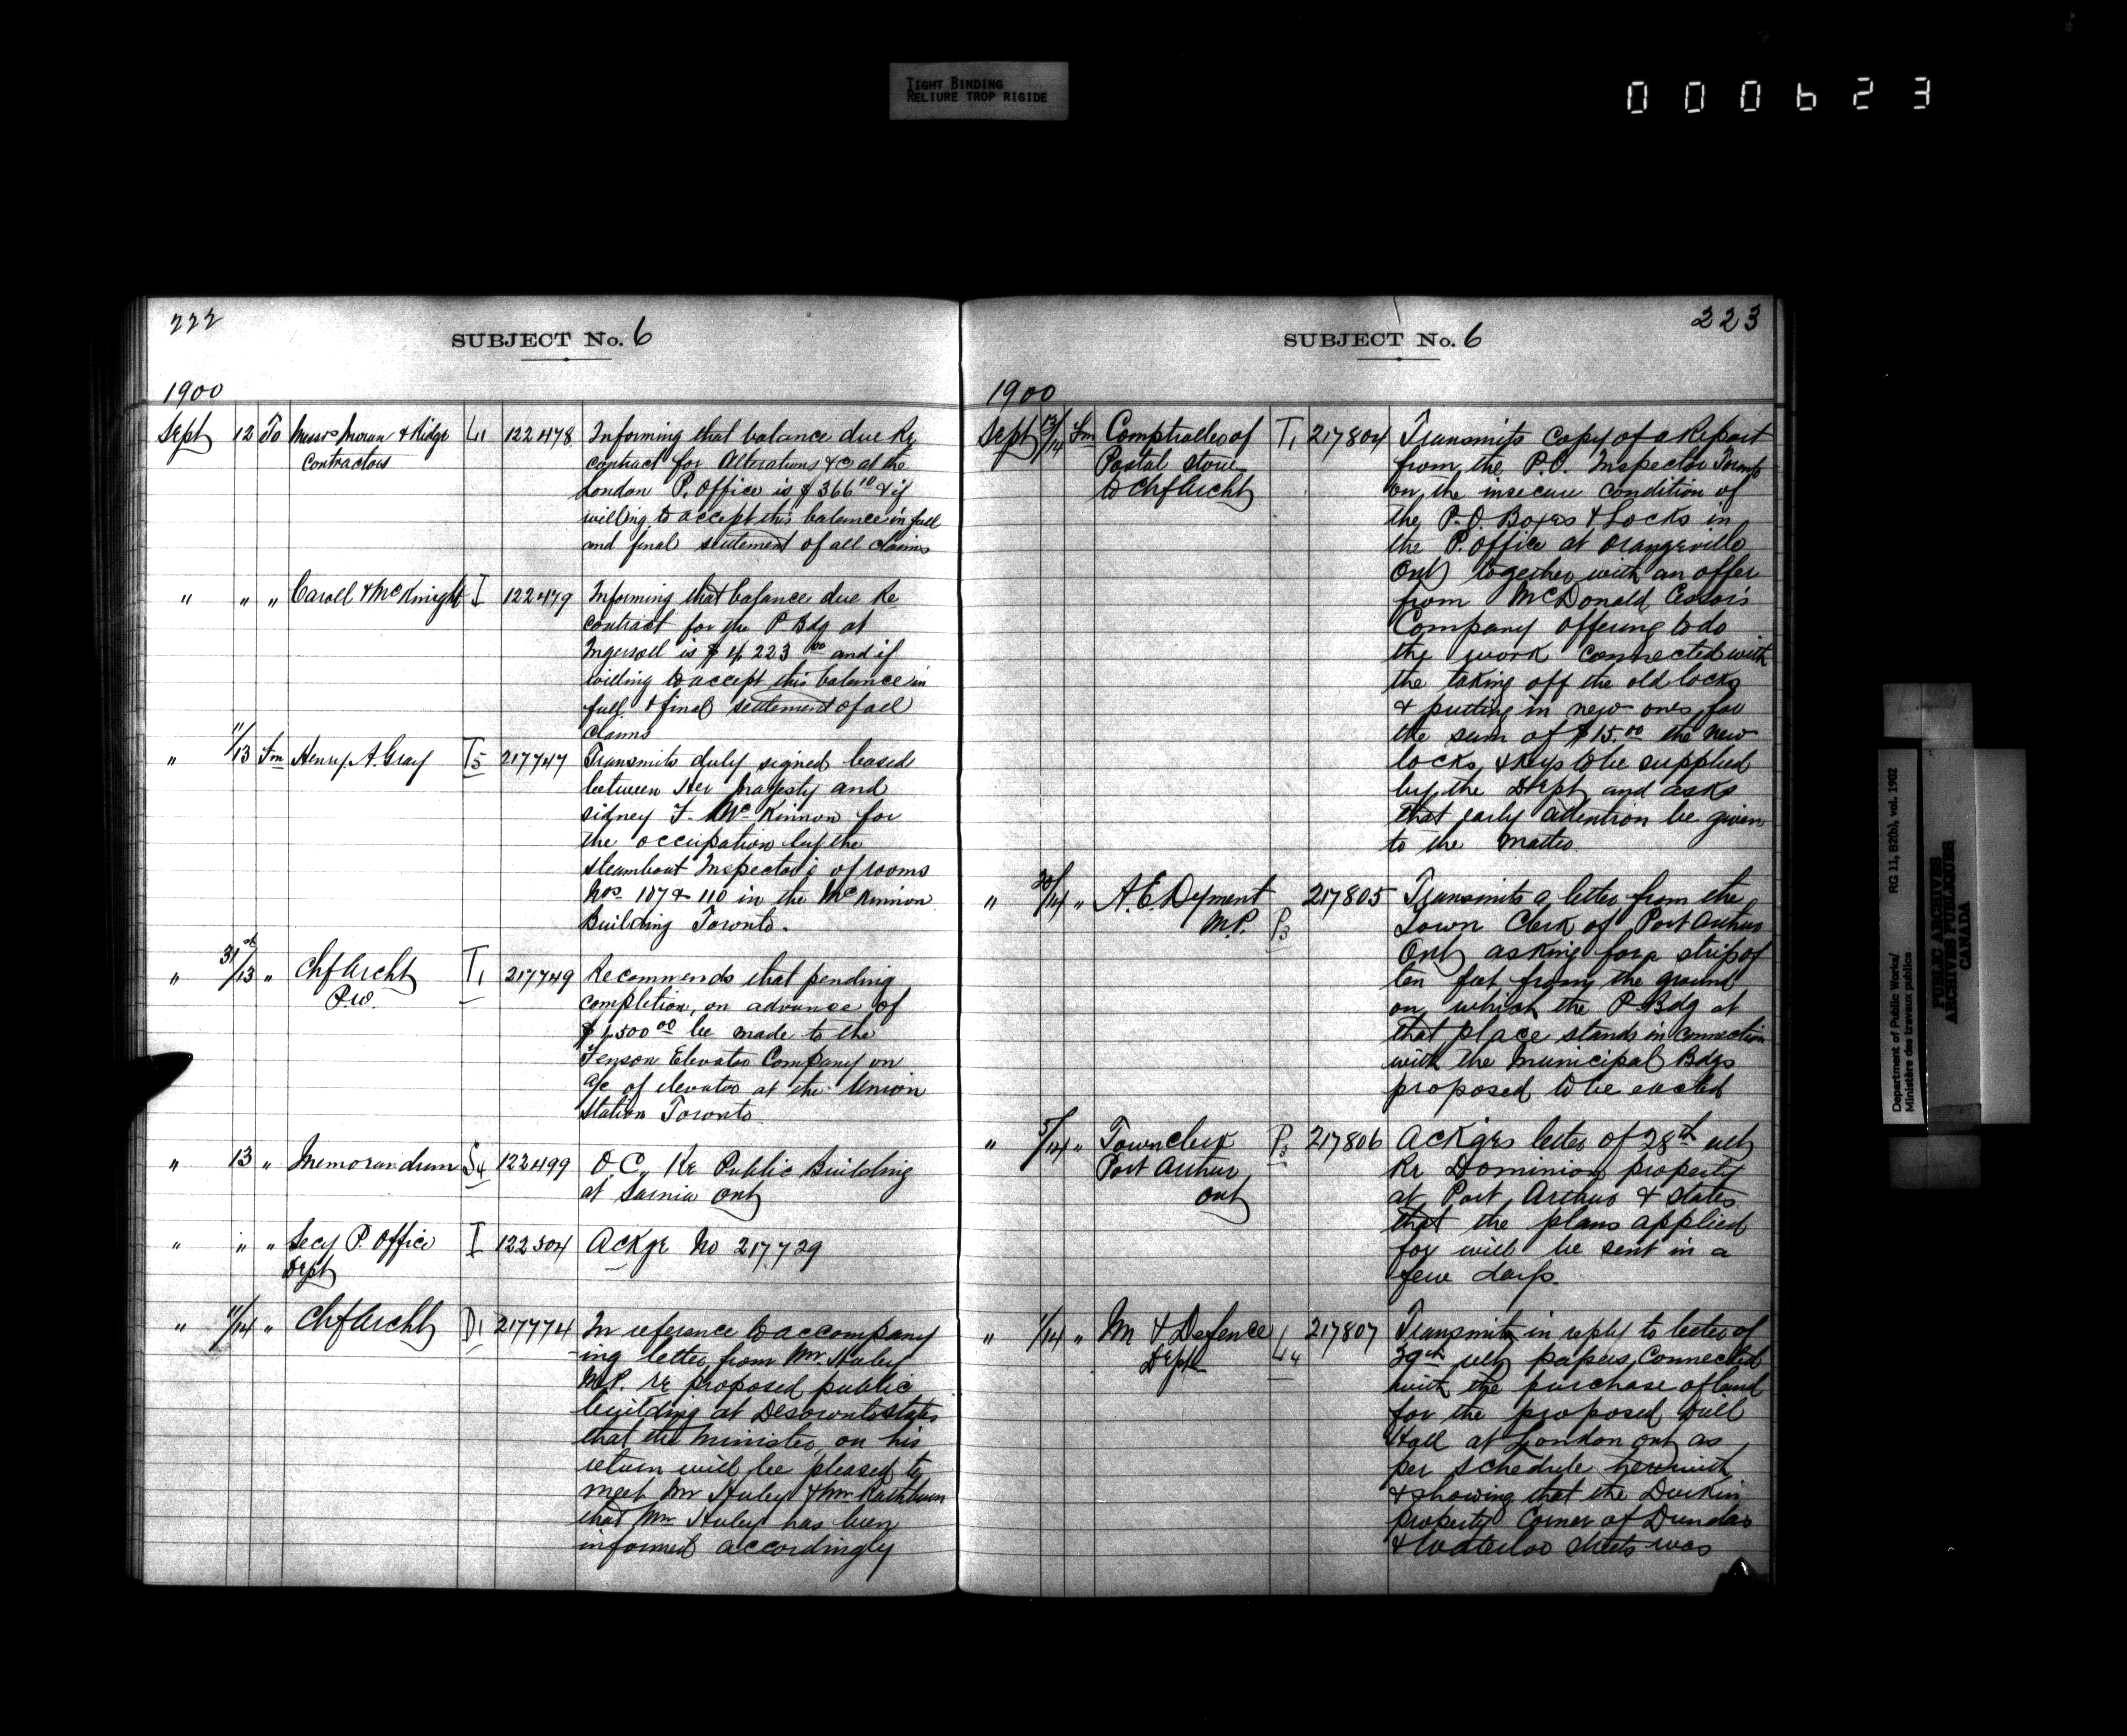 TIGHT BINDING
RELIURE TROP RIGIDE
000623
222
SUBJECT No. 6
1900
Sept 12 To Messrs Moran & Ridge L1 122478 Informing that balance due Re
Contractors contract for Alterations &c at the
London P. Office is $366 10 & if
willing to accept this balance in full
and final settlement of all claims
" " " Caroll & McKnight I 122479 Informing that balance due Re
contract for the P Bdg at
Ingersoll is $4,223 00 and if
willing to accept this balance in
full & final settlement of all
claims
" 11/13 Fm Henry A. Gray T5 217747 Transmits duly signed
between Her Majesty and
Sidney F. McKinnon for
the occupation by the
Steamboat Inspectors of rooms
Nos 107 & 110 in the McKinnon
Building Toronto.
" 31st/13 " Chf Archt T1 217749 Recommends that pending
P.W. completion, an advance of
$1,500 00 be made to the
Fenson Elevator Company on
a/c of elevator at the Union
Station Toronto
" 13 " Memorandum S4 122499 O C, Re Public Building
at Sarnia Ont
" " " Secy P. Office I 122504 Ackge No 217729
Dept
" 11/14 " Chf Archt D1 217774 In reference to accompany
-ing letter from Mr Hurley
M.P. re proposed public
building at Deseronto states
that the Minister, on his
return will be pleased to
meet Mr Hurley & Mr Rathbun
that Mr Hurley has been
informed accordingly
223
SUBJECT No. 6
1900
Sept 13/14 Fm Comptroller of T1 217804 Transmits copy of a Report
Postal Store from the P.O. Inspector Toronto
to Chf Archt on the insecure condition of
the P.O. Boxes & Locks in
the P. Office at Orangeville
Ont together with an offer
from McDonald
Company offering to do
the work connected with
the taking off the old locks
& putting in new ones for
the sum of $15.00 the new
locks & keys to be supplied
by the Dept and asks
that early attention be given
to the matter.
" /14 " A.E. Dyment 217805 Transmits a letter from the
M.P. P3 Town Clerk of Port Arthur
Ont asking for a strip of
ten feet from the ground
on which the P Bdg at
that place stands in connection
with the Municipal Bdgs
proposed to be erected
" 5/14 " Town clerk P3 217806 Ackges letter of 28th ult
Port Arthur Re Dominion property
Ont at Port Arthur & states
that the plans applied
for will be sent in a
few days.
" 1/14 " M & Defence L4 217807 Transmits in reply to letter of
Dept 29th ult papers connected
with the purchase of land
for the proposed Drill
Hall at London Ont as
per schedule herewith
& showing that the Durkin
property Corner of Dundas
& Waterloo streets was
Department of Public Works/ RG 11, B2(b), vol. 1902
Ministère des travaux publics
PUBLIC ARCHIVES
ARCHIVES PUBLIQUES
CANADA